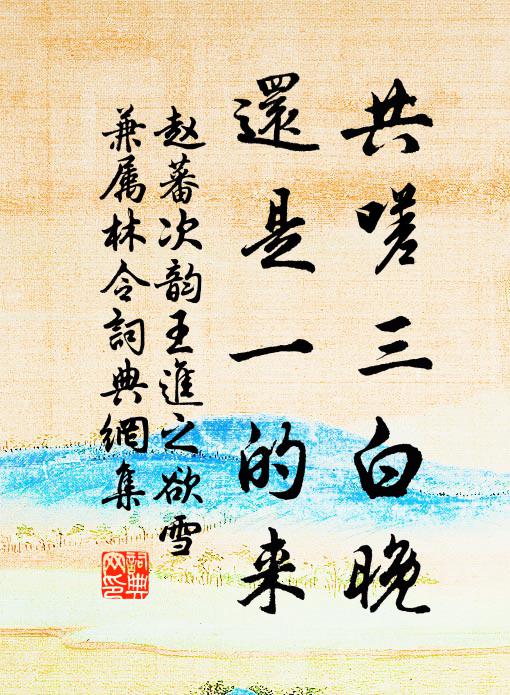 共嗟三白晚
還是一的来
赵蕃次韵王進之欲雪
兼属林令詞典網集
詞典